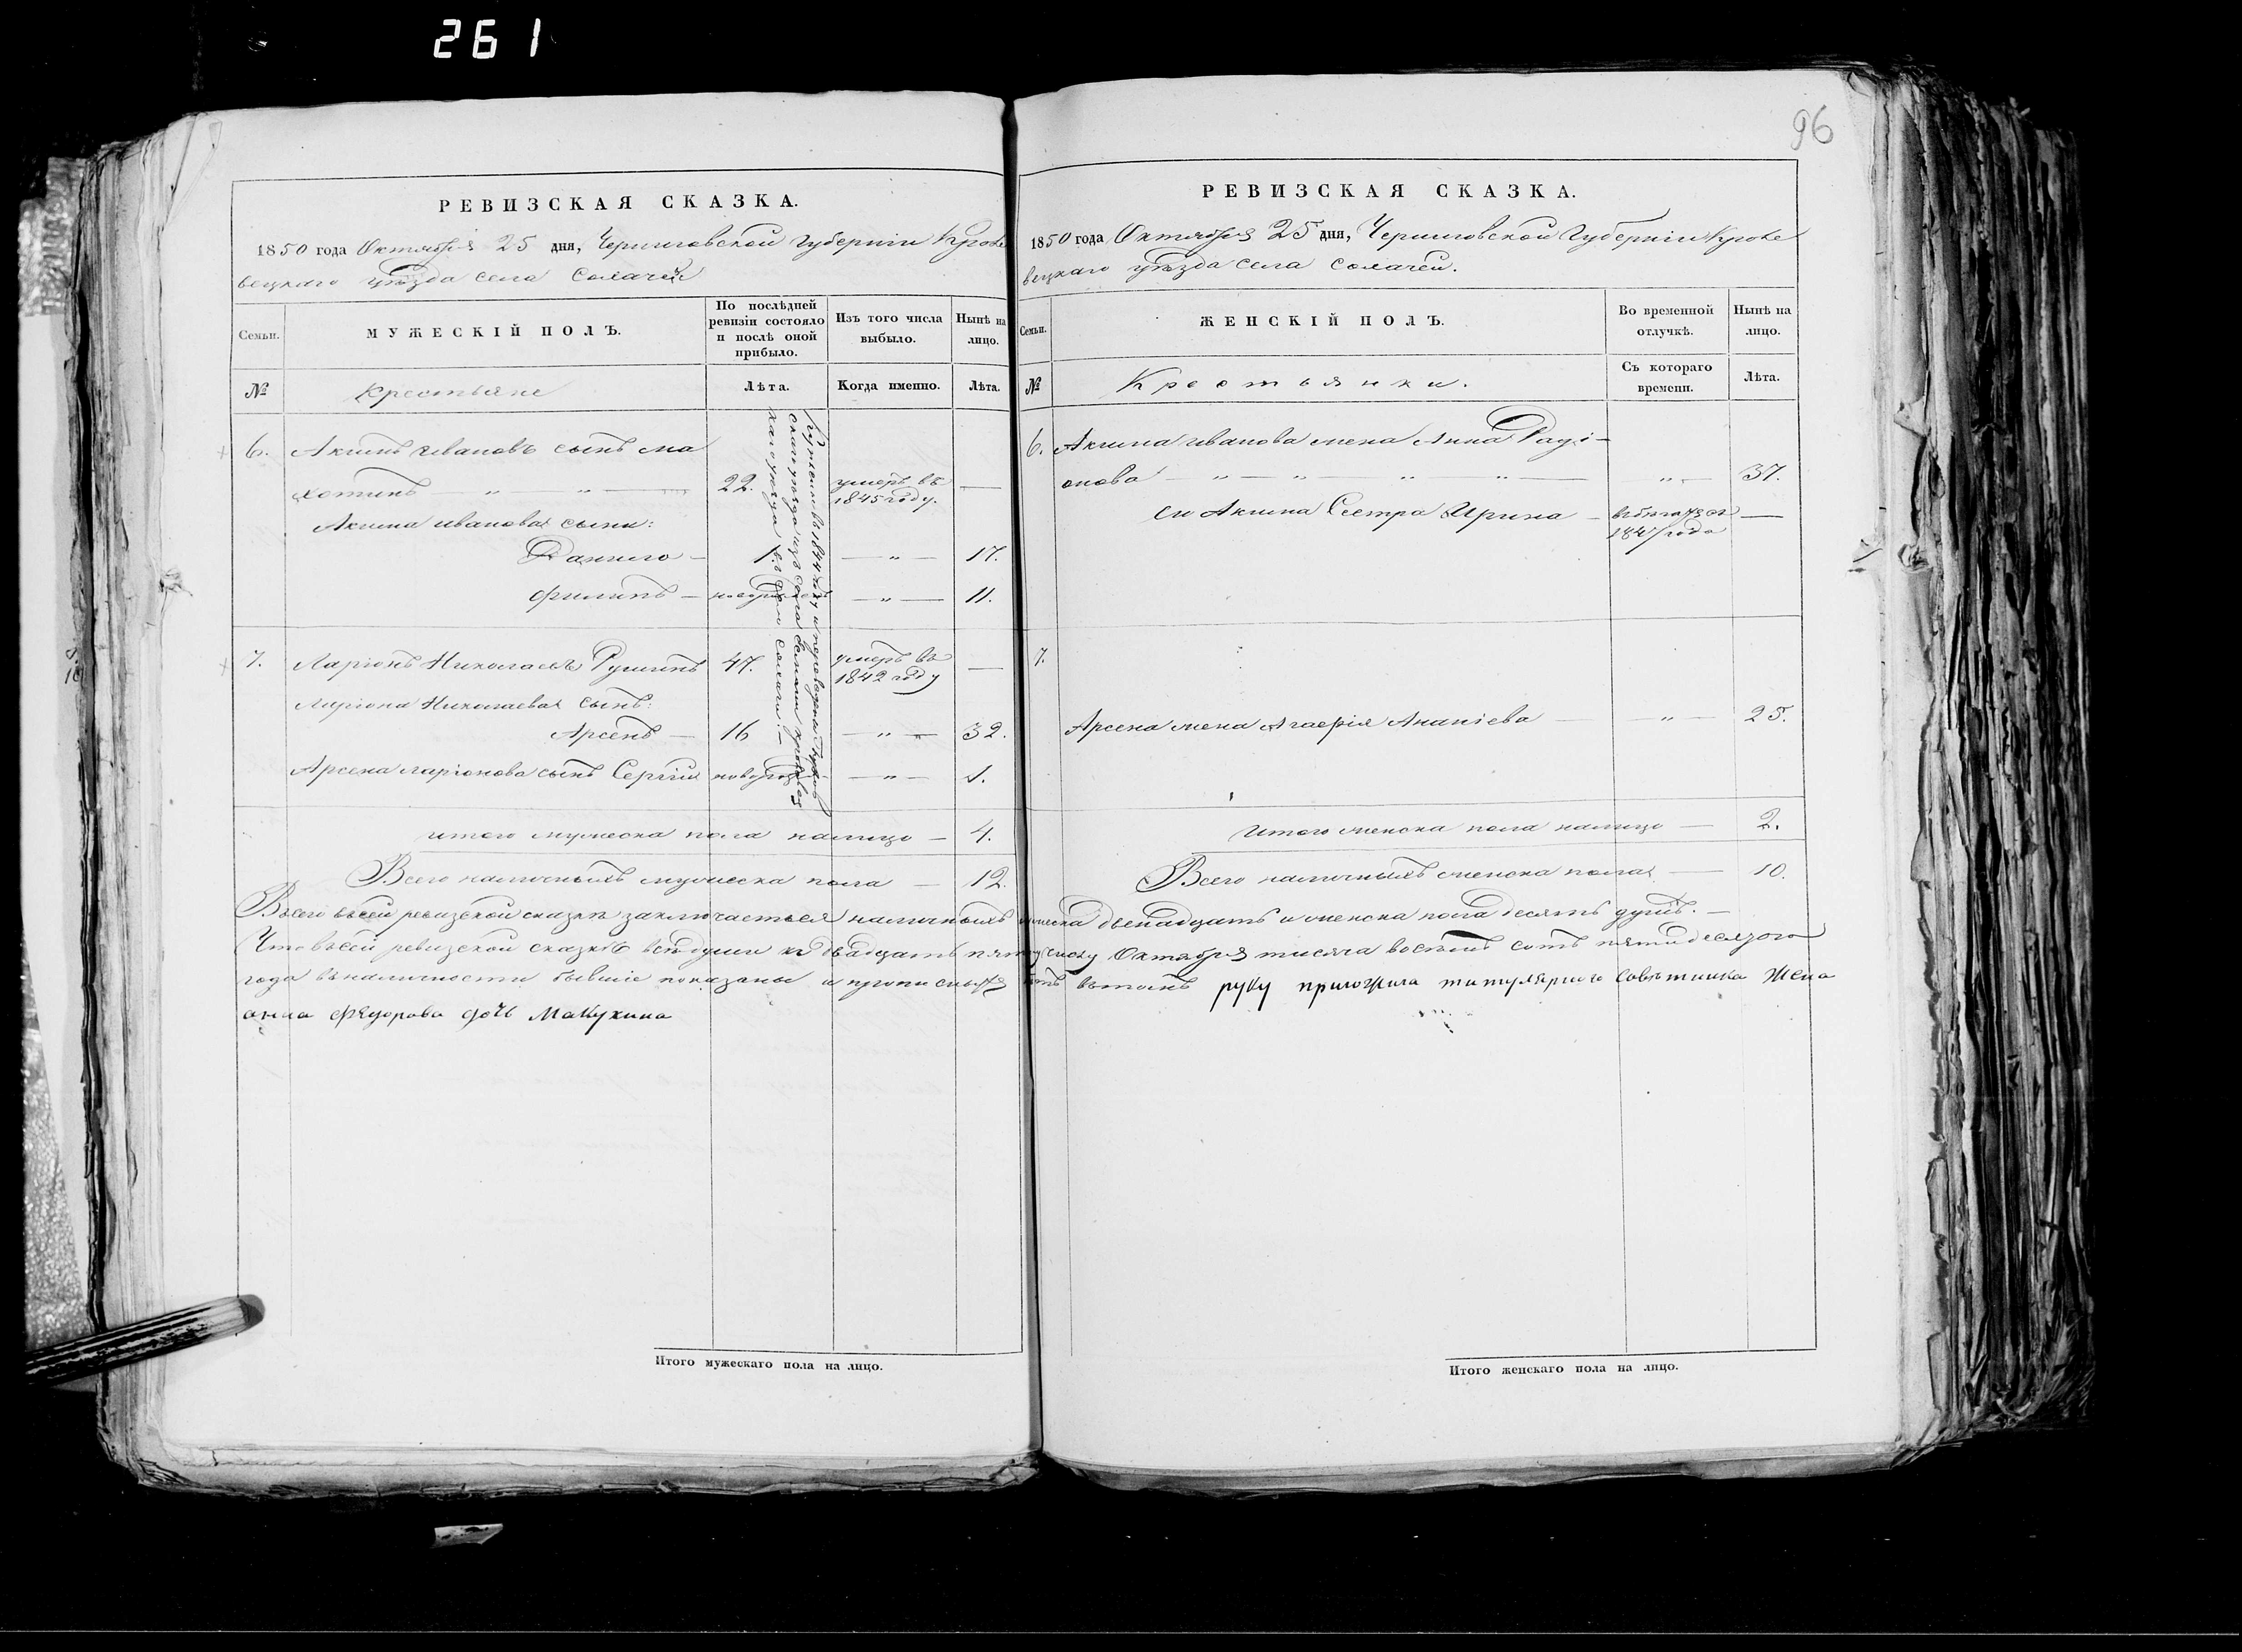 261
96
РЕВИЗСКАЯ СКАЗКА.
1850 года Октября 25 дня, Черниговской Губерніи Кроле
вецкаго уѣзда села
Семьи.
МУЖЕСКІЙ ПОЛЪ.
По послѣдней ревизіи состояло и послѣ оной прибыло.
Изъ того числа выбыло.
Нынѣ на лицо.
№
Крестьяне
Лѣта.
Когда именно.
Лѣта.
6. Акимъ Ивановъ сынъ Ма
хотинъ — „ — „ — 22. умеръ въ 1845 году. —
Акима Иванова сыны:
Данило — 1. — „ — 17.
Филипъ — новорожден — „ — 11.
7. Ларіонъ Николаевъ 47. умеръ въ 1842 году —
Ларіона Николаева сынъ:
Арсенъ — 16 — „ — 32.
Арсена Ларіонова сынъ Сергій новорож — „ — 1.
итого мужеска пола налицо — 4.
Всего наличныхъ мужеска пола — 12.
РЕВИЗСКАЯ СКАЗКА.
1850 года Октября 25 дня, Черниговской Губерніи Кроле
вецкаго уѣзда села
Семьи.
ЖЕНСКІЙ ПОЛЪ.
Во временной отлучкѣ.
Нынѣ на лицо.
№
Крестьянки.
Съ котораго времени.
Лѣта.
6. Акима Иванова жена Анна Радi-
онова — „ — „ — „ — „ — „ — 37.
его Акима Сестра Ирина — 1847 года —
7.
Арсена жена Агафія Ананіева — „ — 25.
Итого женска пола налицо — 2.
Всего наличныхъ женска пола — 10.
Всего въсей ревизской сказкѣ заключается наличныхъ мужеска двенадцать и женска пола десять душъ. —
Что въсей ревизской сказкѣ всѣ души къ двадцать пятому числу Октября тисяча восемь сотъ пятидесятого
года въналичности бывшіе показаны и прописныхъ нѣтъ вътомъ руку приложила титулярного Совѣтника Жена
анна Федорова дочь Макухина
Итого мужескаго пола на лицо.
Итого женскаго пола на лицо.